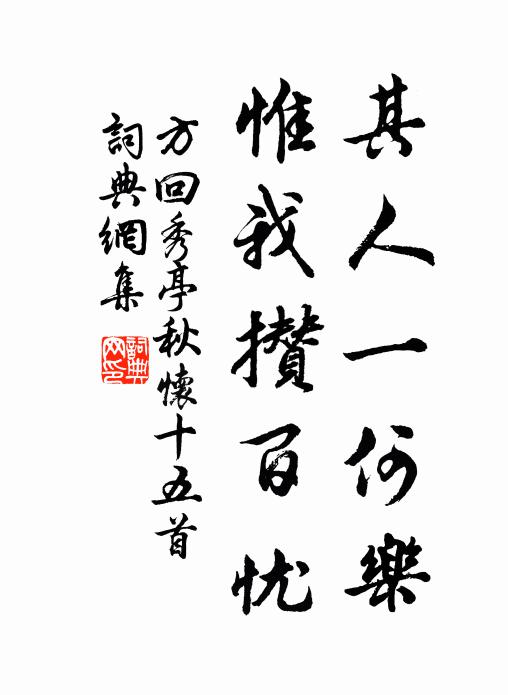 其人一何樂
惟我攢百忧
方回秀亭秋懷十五首
詞典網集
詞典網印